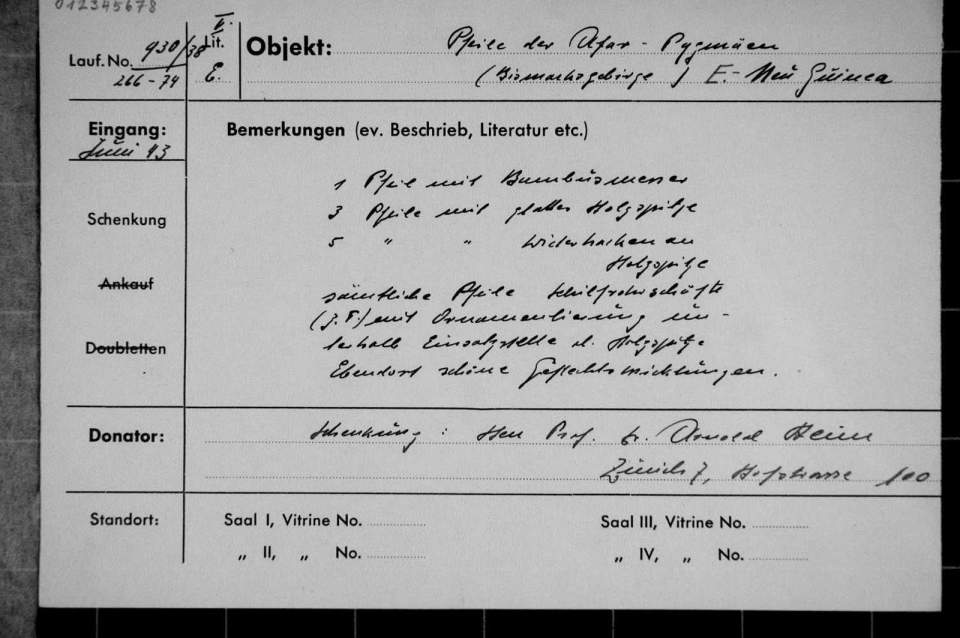 012345678
Lauf. No. 930/38
266-74
II.
Lit.
E.
Objekt: Pfeile der Afar-Pygmäen
(Bismarckgebirge) E.-Neu Guinea
Eingang:
Juni 43
Bemerkungen (ev. Beschrieb, Literatur etc.)
1 Pfeil mit Bambusmesser
3 Pfeile mit glatter Holzspitze
5 " " Widerhaken an
Holzspitze
Schenkung
Ankauf
Doubletten
sämtliche Pfeile Schilfrohrschäfte
(z.T.) mit Ornamentierung un-
terhalb Einsatzstelle d. Holzspitze
Ebendort schöne Geflechtswicklungen.
Donator: Schenkung: Herr Prof. Dr. Arnold Heim
Zürich 7, Hofstrasse 100
Standort: Saal I, Vitrine No. Saal III, Vitrine No.
„ II, „ No. „ IV, „ No.